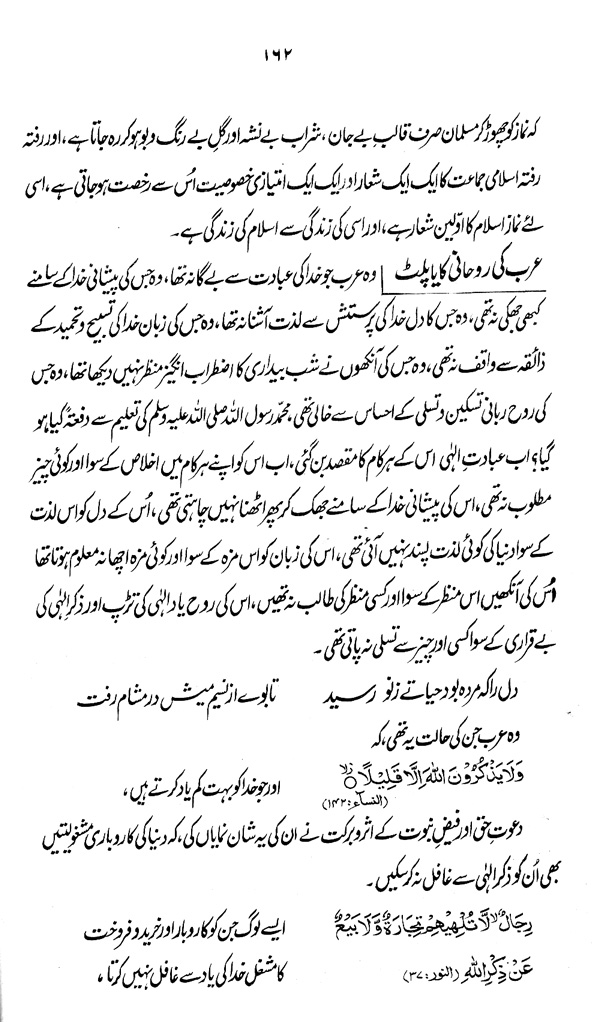 ۱۶۲
کہ نماز کو چھوڑ کر مسلمان صرف قالبِ بے جان، شراب بے نشہ اور گلِ بے رنگ و بو ہو کر رہ جاتا ہے، اور رفتہ
رفتہ اسلامی جماعت کا ایک ایک شعار اور ایک ایک امتیازی خصوصیت اُس سے رخصت ہو جاتی ہے، اسی
لئے نماز اسلام کا اوّلین شعار ہے، اور اسی کی زندگی سے اسلام کی زندگی ہے۔
عرب کی روحانی کایا پلٹ وہ عرب جو خدا کی عبادت سے بے گانہ تھا، وہ جس کی پیشانی خدا کے سامنے
کبھی جھکی نہ تھی، وہ جس کا دل خدا کی پرستش سے لذت آشنا نہ تھا، وہ جس کی زبان خدا کی تسبیح و تحمید کے
ذائقہ سے واقف نہ تھی، وہ جس کی آنکھوں نے شب بیداری کا اضطراب انگیز منظر نہیں دیکھا تھا، وہ جس
کی روح ربانی تسکین و تسلی کے احساس سے خالی تھی محمد رسول اللہ صلی اللہ علیہ وسلم کی تعلیم سے دفعتہً کیا ہو
گیا؟ اب عبادتِ الٰہی اس کے ہر کام کا مقصد بن گئی، اب اس کو اپنے ہر کام میں اخلاص کے سوا اور کوئی چیز
مطلوب نہ تھی، اس کی پیشانی خدا کے سامنے جھک کر پھر اٹھنا نہیں چاہتی تھی، اُس کے دل کو اس لذت
کے سوا دنیا کی کوئی لذت پسند نہیں آتی تھی، اس کی زبان کو اس مزہ کے سوا اور کوئی مزہ اچھا نہ معلوم ہوتا تھا
اُس کی آنکھیں اس منظر کے سوا اور کسی منظر کی طالب نہ تھیں، اس کی روح یادِ الٰہی کی تڑپ اور ذکرِ الٰہی کی
بے قراری کے سوا کسی اور چیز سے تسلی نہ پاتی تھی۔
دل را کہ مردہ بود حیاتے ز نو رسید تا بوے از نسیم میش در مشام رفت
وہ عرب جن کی حالت یہ تھی، کہ
وَلَا يَذْكُرُوْنَ اللّٰهَ اِلَّا قَلِيْلًا (النساء:۱۴۲) اور جو خدا کو بہت کم یاد کرتے ہیں،
دعوتِ حق اور فیضِ نبوت کے اثر و برکت نے ان کی یہ شان نمایاں کی، کہ دنیا کی کاروباری مشغولیتیں
بھی اُن کو ذکرِ الٰہی سے غافل نہ کر سکیں۔
رِجَالٌ لَّا تُلْهِيْهِمْ تِجَارَةٌ وَّلَا بَيْعٌ ایسے لوگ جن کو کاروبار اور خرید و فروخت
عَنْ ذِكْرِ اللّٰهِ (النور:۳۷) کا مشغل خدا کی یاد سے غافل نہیں کرتا،